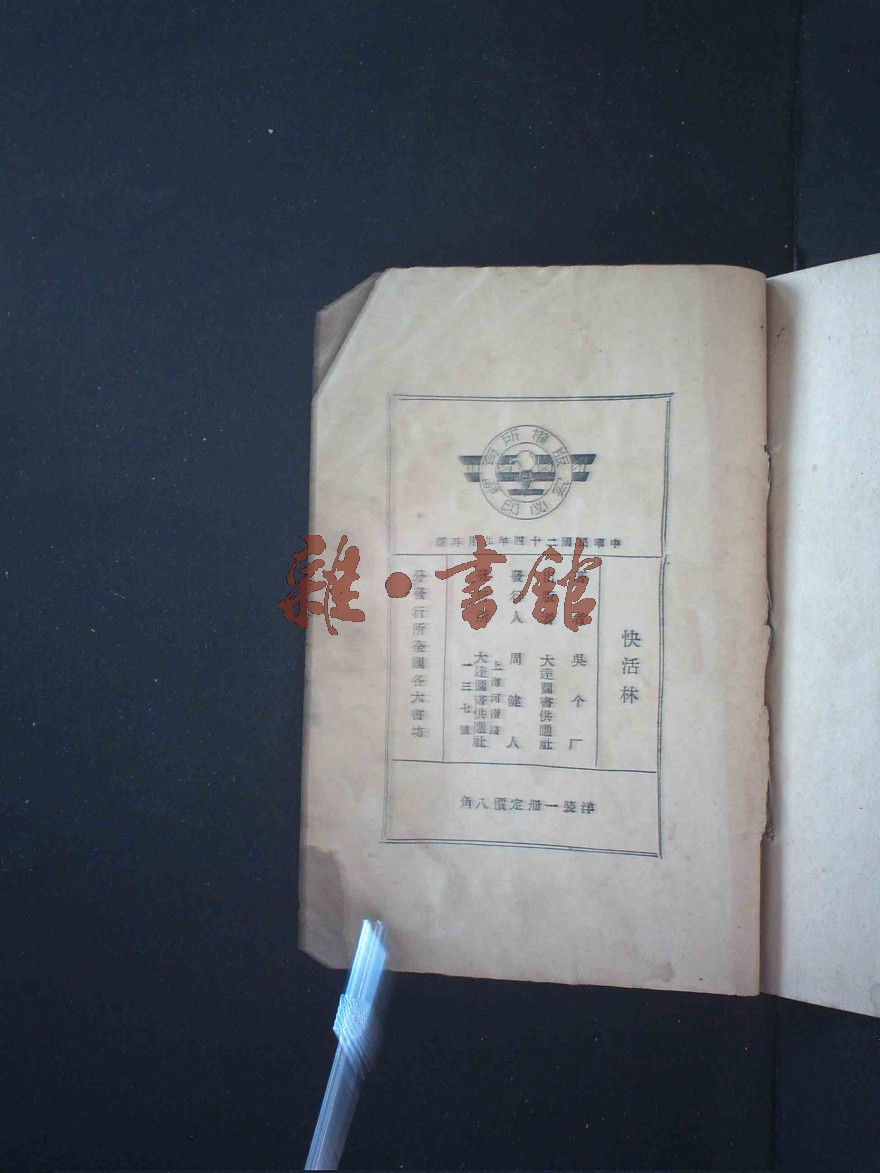 版權所有
翻印必究
中華民國二十四年九月再版
快活林
吳个厂
大達圖書供應社
發行人 周健人
大達圖書供應社
上海河南路
一三七號
分發行所全國各大書坊
洋裝一册定價八角
雜·書館